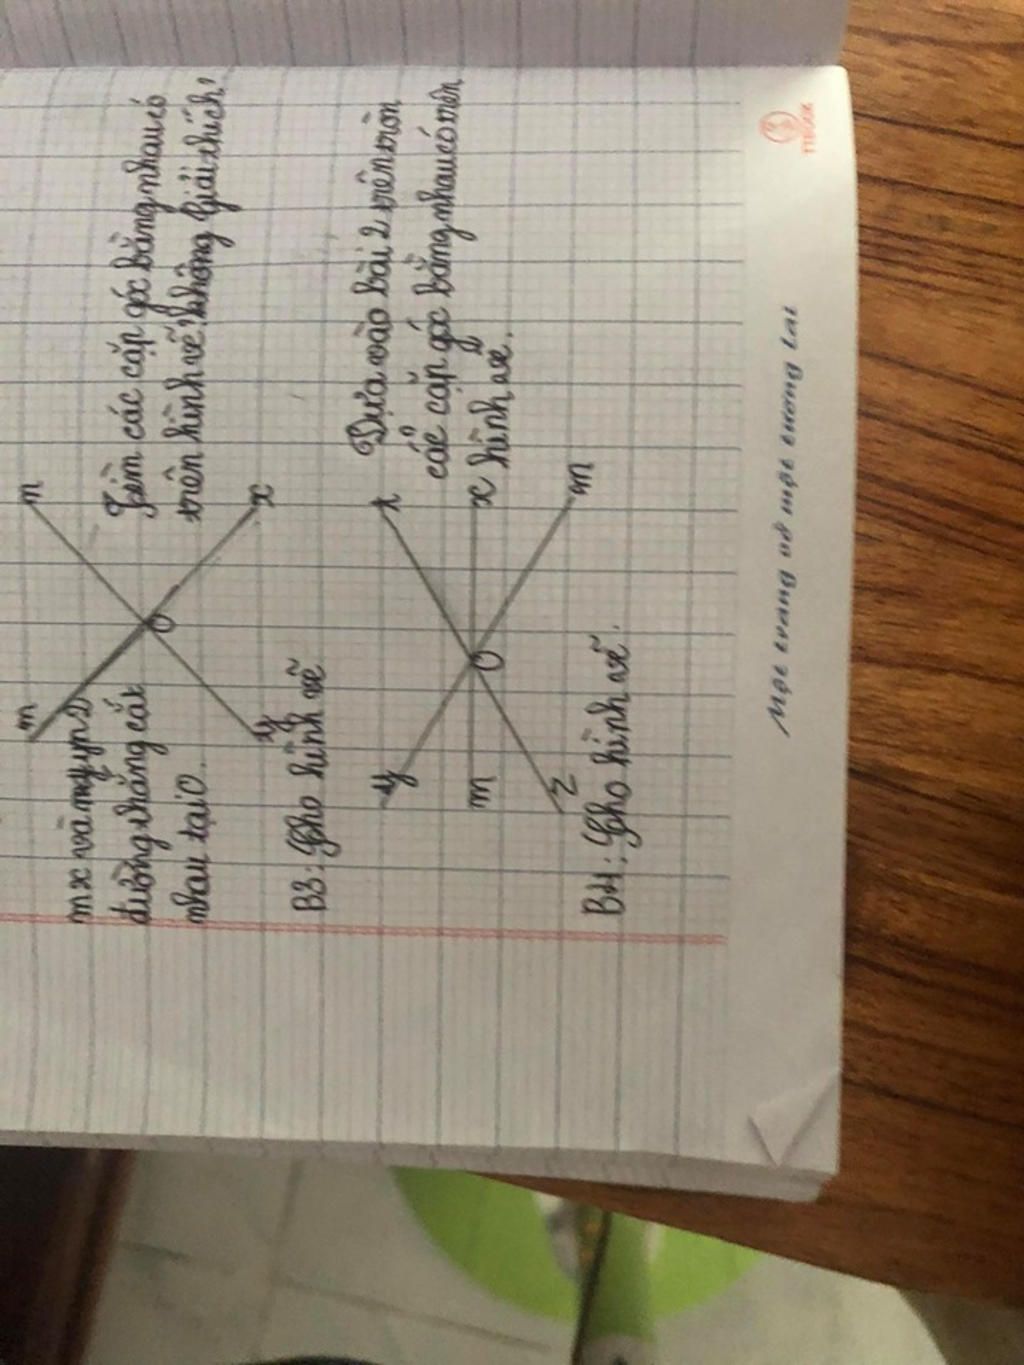 m
n
mx và ny yn 2
đường thẳng cắt
nhau tại O.
O
y
x
Tìm các cặp góc bằng nhau có
trên hình vẽ? không giải thích?
B3: Cho hình vẽ
y
t
m
O
x
z
n
Dựa vào bài 2 trên tròn
các cặp góc bằng nhau có trên
hình vẽ.
B4: Cho hình vẽ.
Một trang vở một tương lai